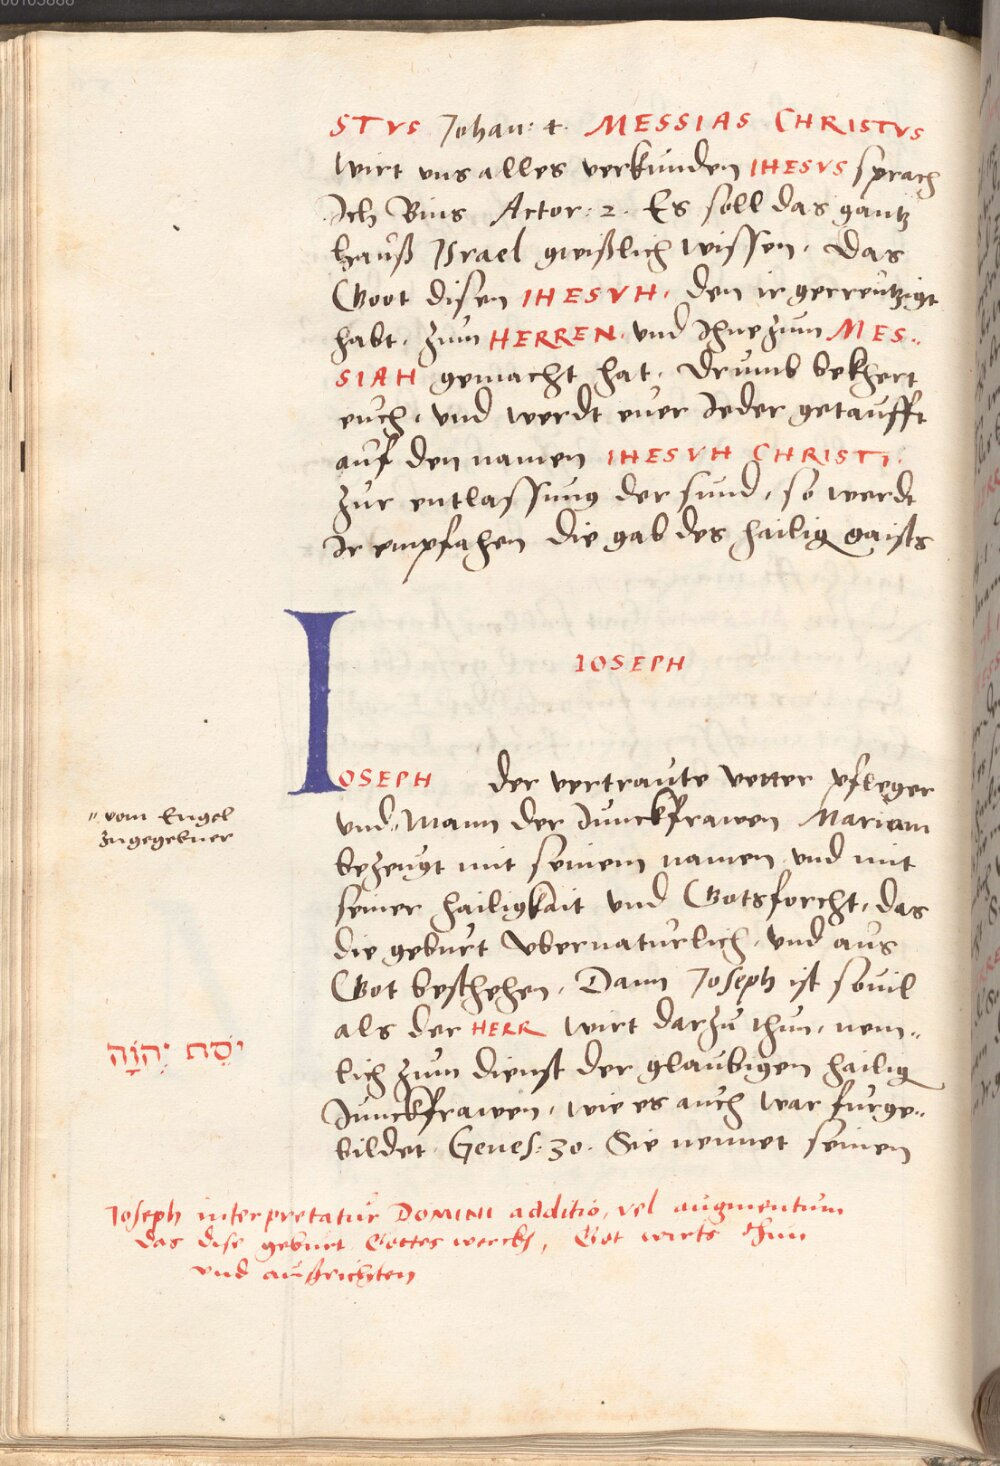 STVS Johan: 4. MESSIAS CHRISTVS
wirt vns alles verkunden IHESVS sprach
Ich Bins Actor: 2. Es soll das gantz
hauß Israel gwißlich wissen, Das
Goot disen IHESVH, den ir gecreutzigt
habt, zum HERREN und Ihne zum MES..
SIAH gemacht hat, Drumb bekhert
euch, vnd werdt euer Ieder getaufft
auf den namen IHESVH CHRISTI.
zur entlassung der sund, so werdt
Ir empfahen die gab des hailig gaists
IOSEPH
IOSEPH der vertraute vetter pfleger
vnd, Mann der Iunckfrawen Mariam
" vom Engel
zugegebner
bezeugt mit seinem namen vnd mit
seiner hailigkait vnd Gotsforcht, das
die geburt vbernaturlich, vnd aus
Got beschehen, Dann Joseph ist souil
als der HERR wirt darzu thun, nem..
יֹסֵת יְהֹוָה
lich zum dienst der glaubigen hailig
Iunckfrawen, wie es auch war furge..
bildet. Genes: 30. Sie nennet seinen
Joseph interpretatur DOMINI additio, vel augmentum
das dise geburt Gottes werckh, Got wirts thun
vnd außrichten